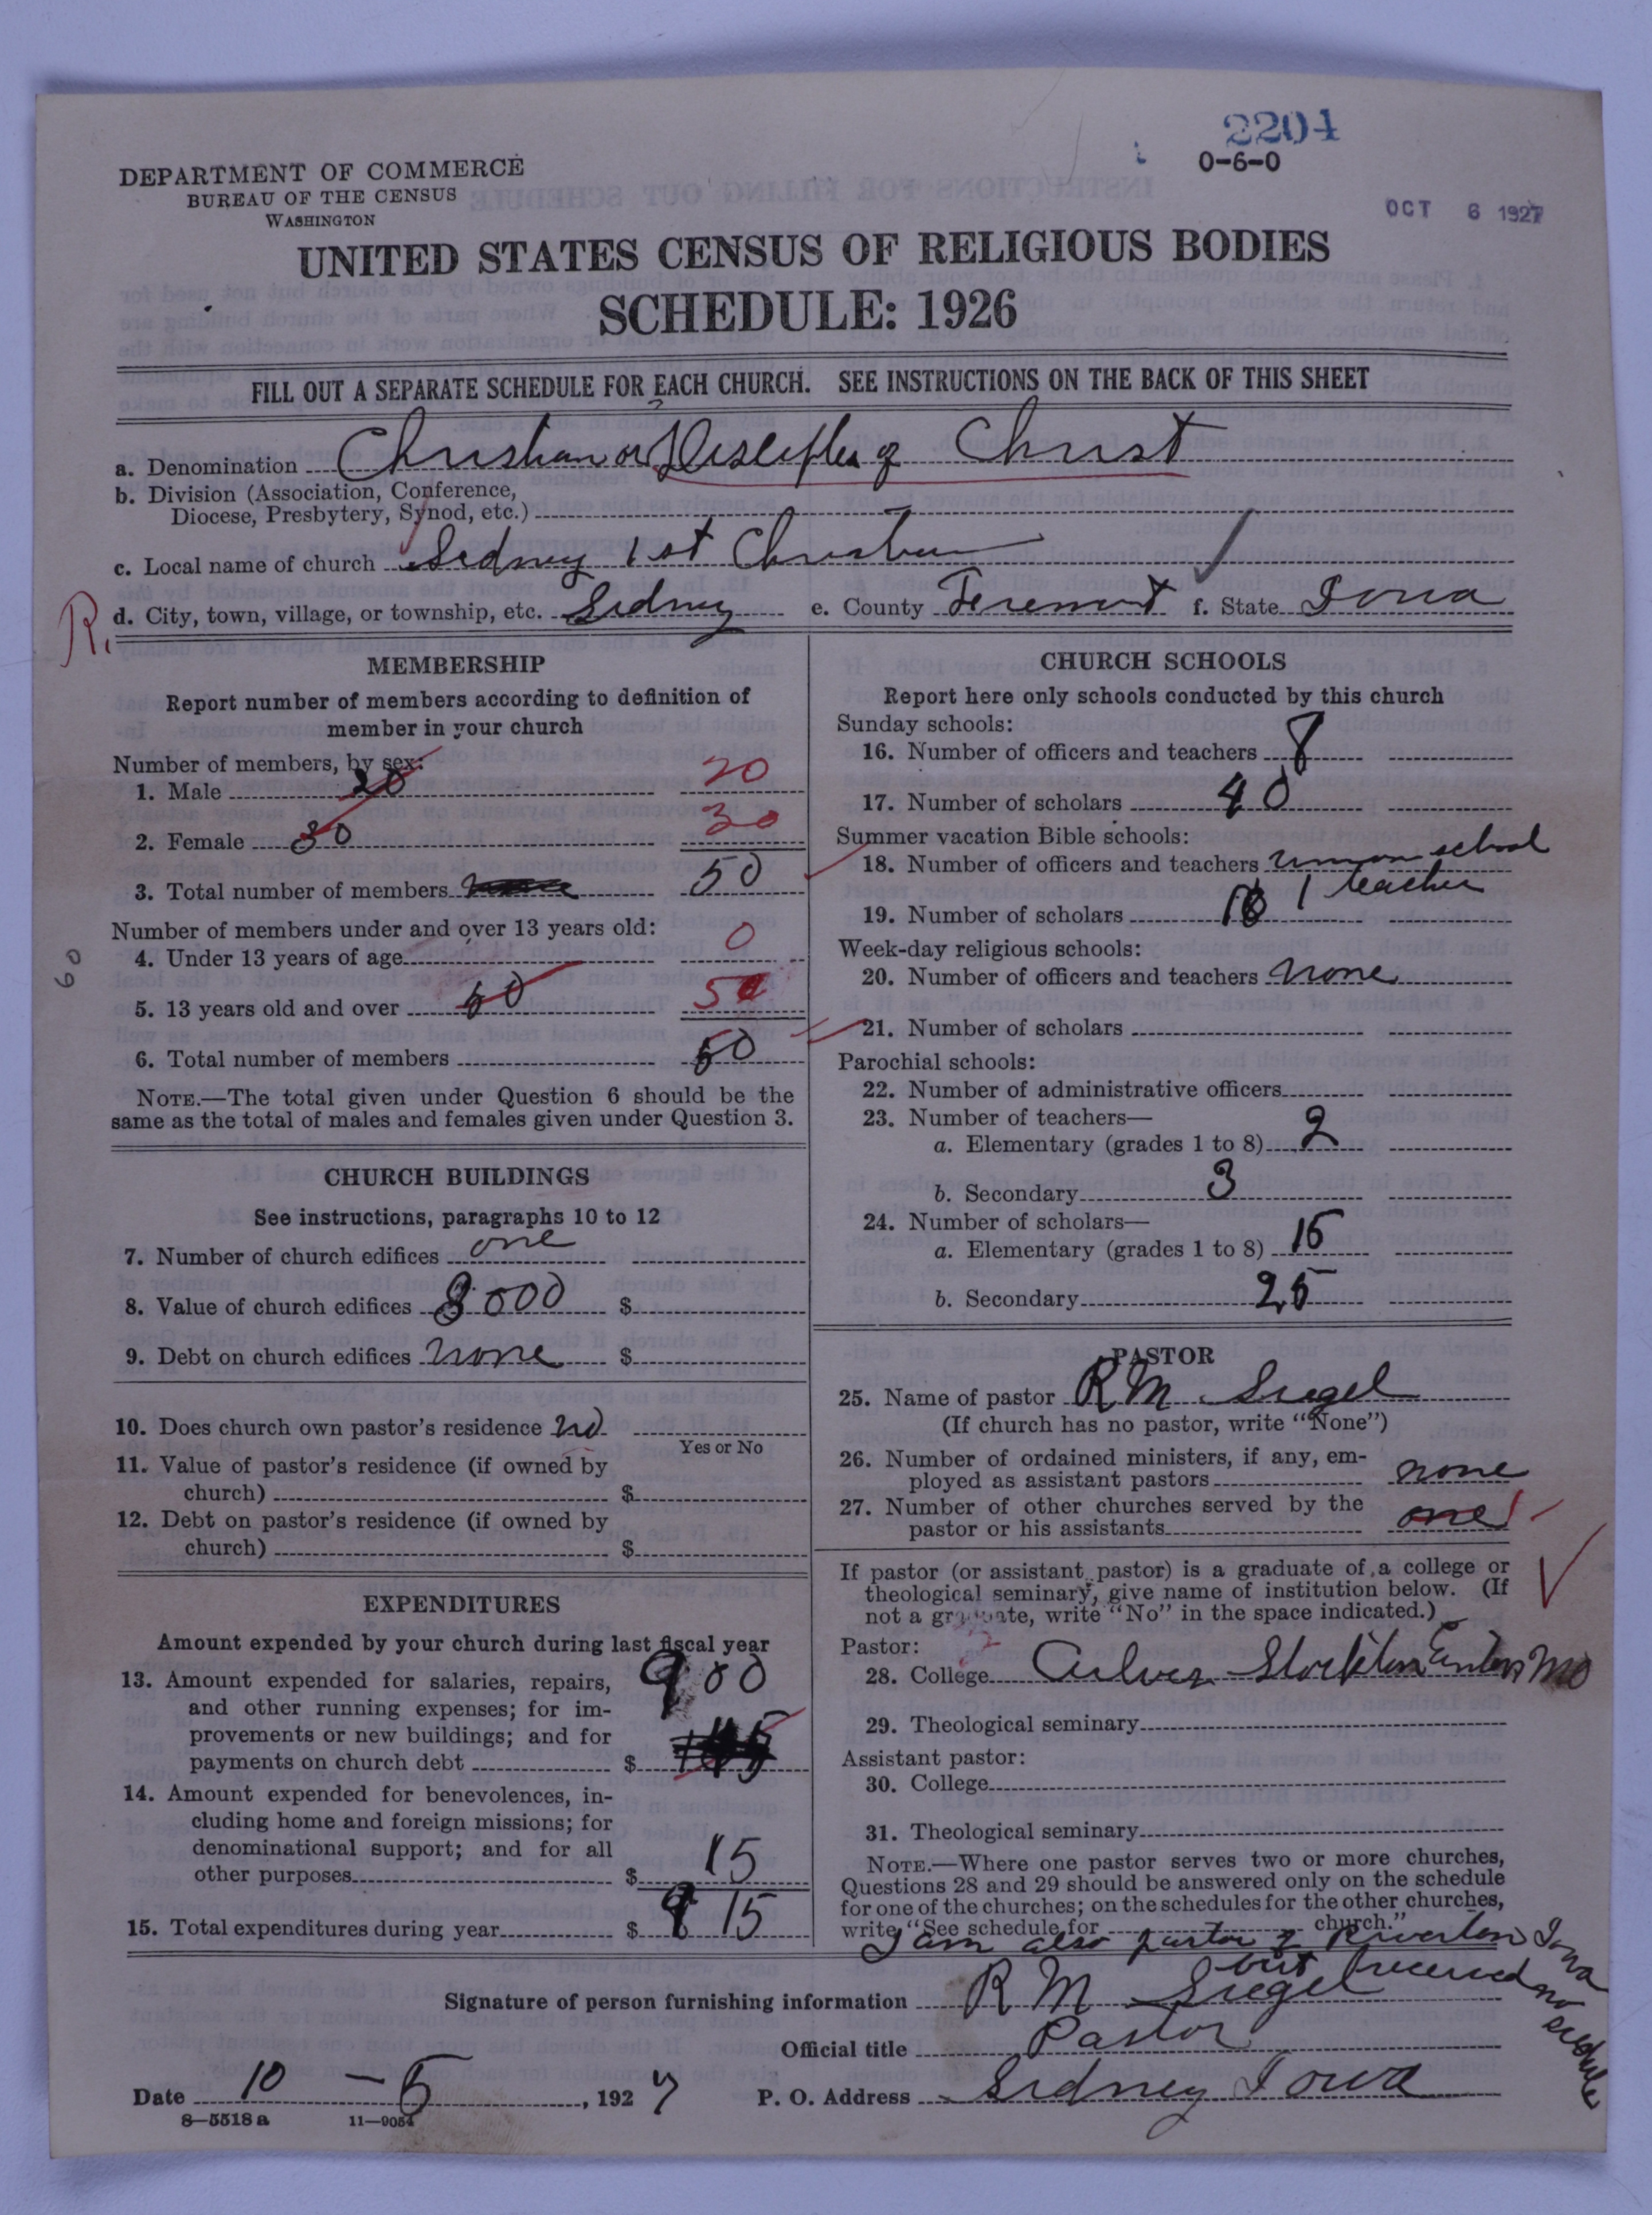 2204
0-6-0
DEPARTMENT OF COMMERCE
BUREAU OF THE CENSUS
WASHINGTON
OCT 6 1927
UNITED STATES CENSUS OF RELIGIOUS BODIES
SCHEDULE: 1926
FILL OUT A SEPARATE SCHEDULE FOR EACH CHURCH. SEE INSTRUCTIONS ON THE BACK OF THIS SHEET
a. Denomination Christian or Disciples of Christ
b. Division (Association, Conference,
Diocese, Presbytery, Synod, etc.)
c. Local name of church Sidney 1st Christian
R. d. City, town, village, or township, etc. Sidney e. County Fremont f. State Iowa
MEMBERSHIP
Report number of members according to definition of
member in your church
Number of members, by sex:
1. Male 20 20
2. Female 30 30
3. Total number of members 50
Number of members under and over 13 years old:
4. Under 13 years of age 0
60
5. 13 years old and over 60 50
6. Total number of members 60
NOTE.—The total given under Question 6 should be the
same as the total of males and females given under Question 3.
CHURCH BUILDINGS
See instructions, paragraphs 10 to 12
7. Number of church edifices one
8. Value of church edifices 8000 $
9. Debt on church edifices none $
10. Does church own pastor's residence no
Yes or No
11. Value of pastor's residence (if owned by
church) $
12. Debt on pastor's residence (if owned by
church) $
EXPENDITURES
Amount expended by your church during last fiscal year
13. Amount expended for salaries, repairs,
and other running expenses; for im-
provements or new buildings; and for
payments on church debt $ 900
14. Amount expended for benevolences, in-
cluding home and foreign missions; for
denominational support; and for all
other purposes $ 15
15. Total expenditures during year $ 915
CHURCH SCHOOLS
Report here only schools conducted by this church
Sunday schools:
16. Number of officers and teachers 8
17. Number of scholars 40
Summer vacation Bible schools:
18. Number of officers and teachers union school
1 teacher
19. Number of scholars 10
Week-day religious schools:
20. Number of officers and teachers none
21. Number of scholars
Parochial schools:
22. Number of administrative officers
23. Number of teachers—
a. Elementary (grades 1 to 8) 2
b. Secondary 3
24. Number of scholars—
a. Elementary (grades 1 to 8) 15
b. Secondary 25
PASTOR
25. Name of pastor R M Siegel
(If church has no pastor, write "None")
26. Number of ordained ministers, if any, em-
ployed as assistant pastors none
27. Number of other churches served by the
pastor or his assistants one 1
If pastor (or assistant pastor) is a graduate of a college or
theological seminary, give name of institution below. (If
not a graduate, write "No" in the space indicated.)
Pastor:
28. College Culver Stockton Mo
29. Theological seminary
Assistant pastor:
30. College
31. Theological seminary
NOTE.—Where one pastor serves two or more churches,
Questions 28 and 29 should be answered only on the schedule
for one of the churches; on the schedules for the other churches,
write "See schedule for church."
I am also pastor of Riverton Iowa
but received no schedule
Signature of person furnishing information R M Siegel
Official title Pastor
Date 10 - 5, 1927 P. O. Address Sidney Iowa
8—5518 a 11—9054